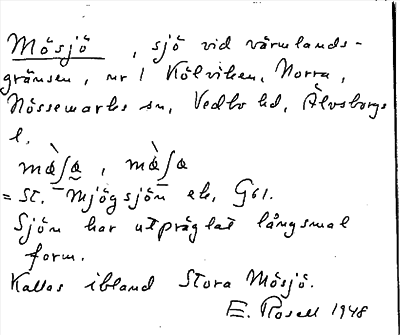 Mösjö, sjö vid värmlands-
gränsen, nr 1 Kölviken, Norra,
Nössemarks sn, Vedbo hd, Älvsborgs
l.
= St. Mjögsjön ek. G61.
Sjön har utpräglat långsmal
form.
Kallas ibland Stora Mösjö.
E. Rosell 1948